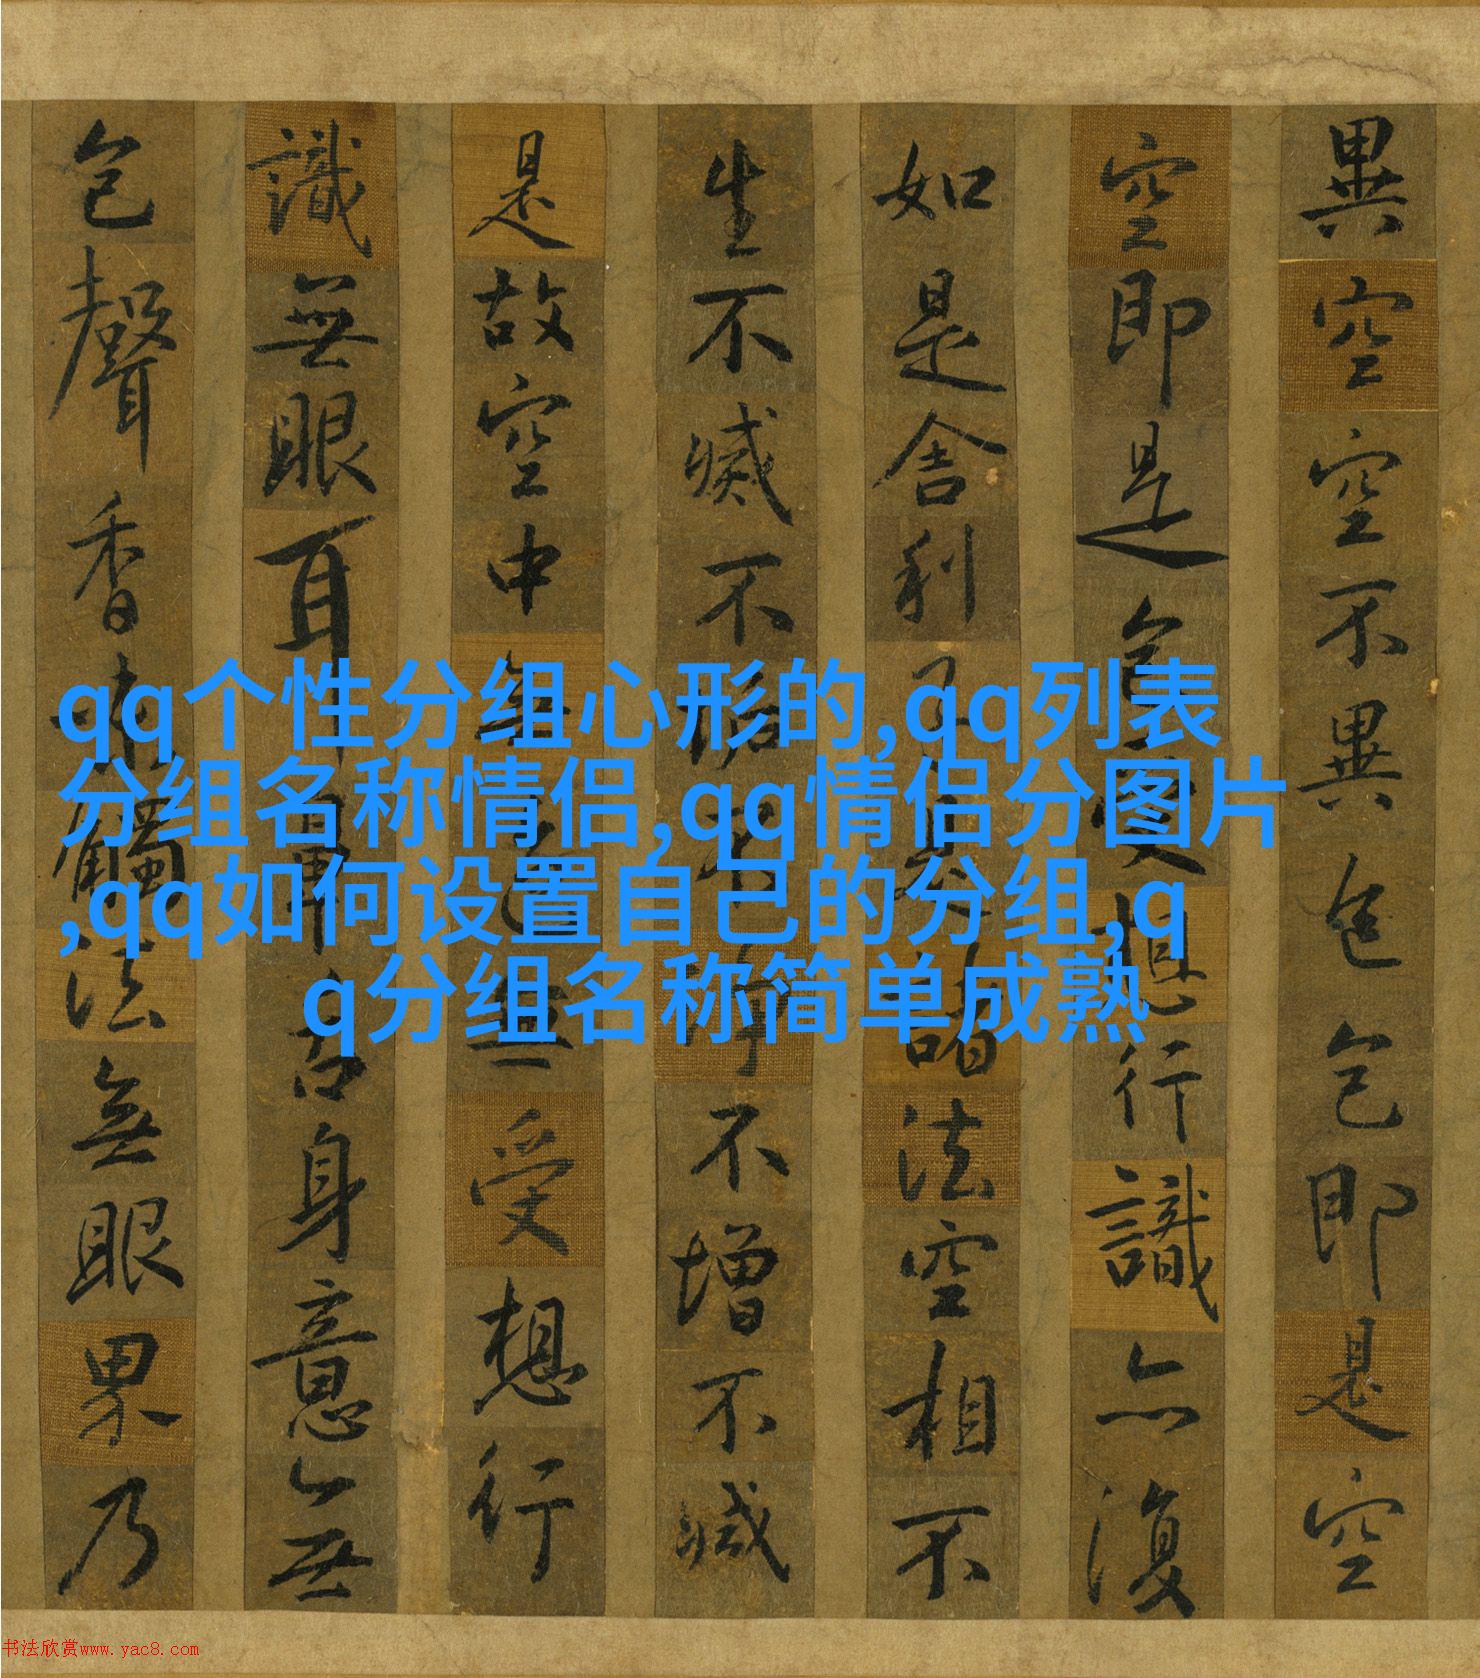 異空空不異色色即是空
空即是色受想行識亦復
如是舍利子是諸法空相不
生不滅不垢不淨不增不減
是故空中無色無受想行
識無眼耳鼻舌身意無
色聲香味觸法無眼界乃
qq个性分组心形的,qq列表
分组名称情侣,qq情侣分图片
,qq如何设置自己的分组,q
q分组名称简单成熟
书法欣赏www.yac8.com